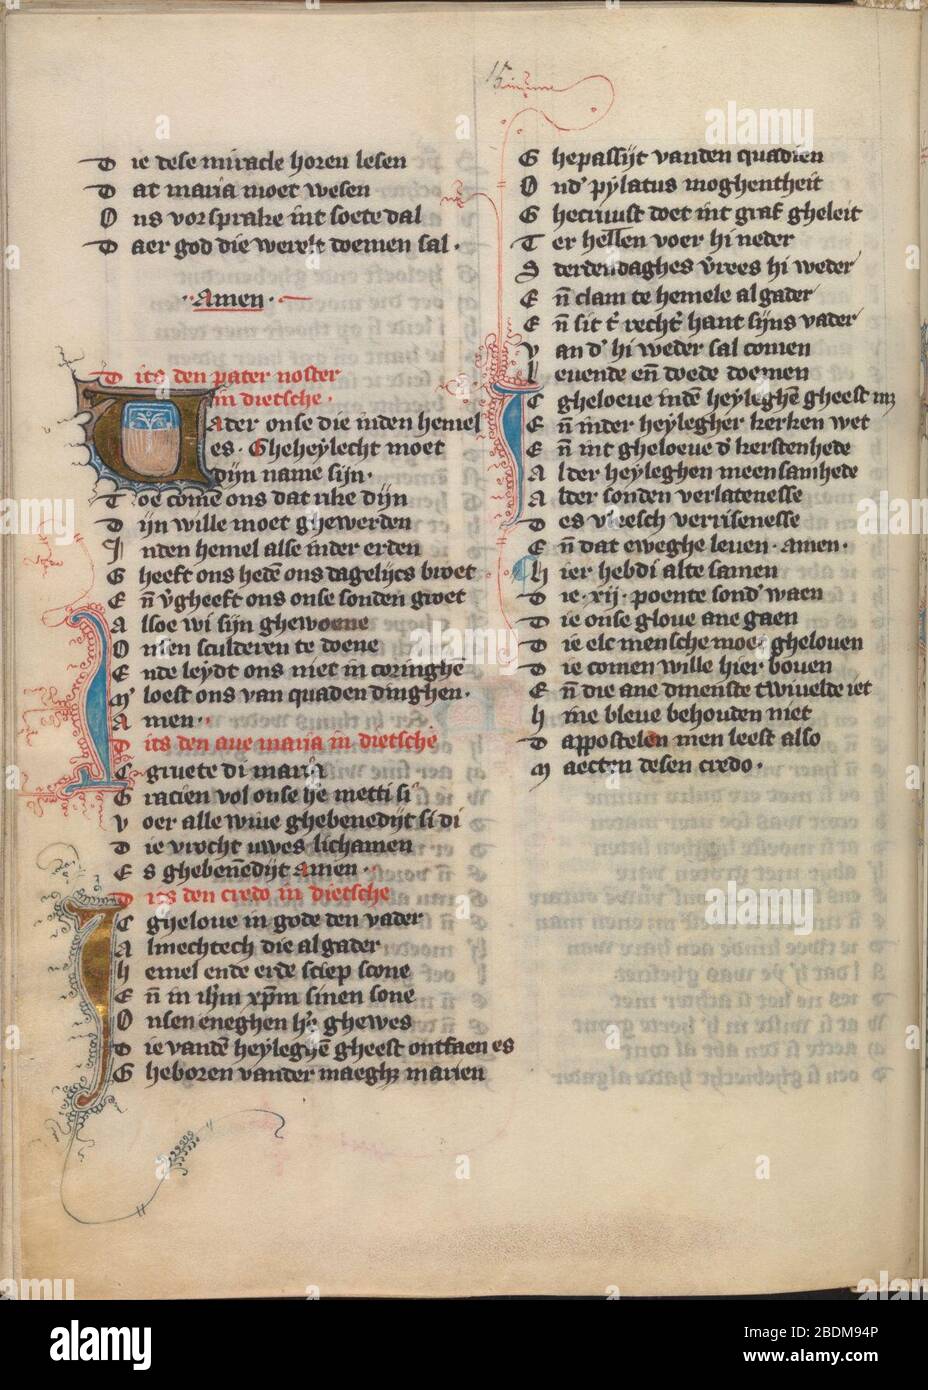 D ie dese miracle horen lesen
D at maria moet wesen
O ns vorsprake int soete dal
D aer god die werelt doemen sal.
.Amen.
Dits den pater noster
in dietsche.
Vader onse die inden hemel
es. Gheheylecht moet
dijn name sijn.
T oe come ons dat rike dijn
D ijn wille moet ghewerden
I nden hemel alse inder erden
G heeft ons hedē ons dagelijcs broet
E ñ v̄gheeft ons onse sonden groet
A lsoe wi sijn ghewoene
O nsen sculderen te doene
E nde leydt ons niet in coringhē
M loest ons van quaden dinghen.
A men.
Dits den aue maria in dietsche
C gruete di maria
G racien vol onse he metti si
V oer alle wiue ghebenedijt si di
D ie vrocht uwes lichamen
E s ghebenedijt amen.
Dits den credo in dietsche
C gheloue in gode den vader
A lmechtech die algader
H emel ende erde sciep scone
E ñ in ihm xpm sinen sone
O nsen eneghen he ghewes
D ie vandē heyleghē gheest ontfaen es
G heboren vander maeghz marien
15
G hepassijt vanden quadien
O nd' pylatus moghentheit
G hecruust doet int graf gheleit
T er hellen voer hi neder
S derdendaghes v̄rees hi weder
E ñ clam te hemele algader
E ñ sit t' recht' hant sijns vader
V an d' hi weder sal comen
L euende eñ doede doemen
C gheloeue indē heyleghē gheest
E ñ inder heylegher kerken wet
E ñ int gheloeue d' kerstenhede
A lder heyleghen meensamhede
A lder sonden verlatenesse
D es vleesch verrisenesse
E ñ dat eweghe leuen. amen.
H ier hebdi alte samen
D ie .xij. poente sond' waen
D ie onse gloue ane gaen
D ie elc mensche moet ghelouen
D ie comen wille hier bouen
E ñ die ane dmenste twiuelde iet
H ine bleue behouden niet
D appostelen men leest also
M aecten desen credo.
alamy
www.alamy.com
Image ID: 2BDM94P